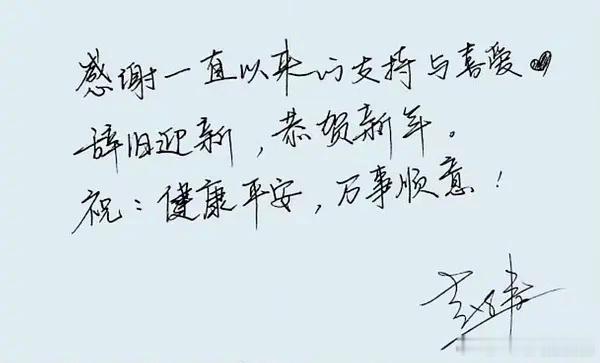 感谢一直以来的支持与喜爱
辞旧迎新，恭贺新年。
祝：健康平安，万事顺意！